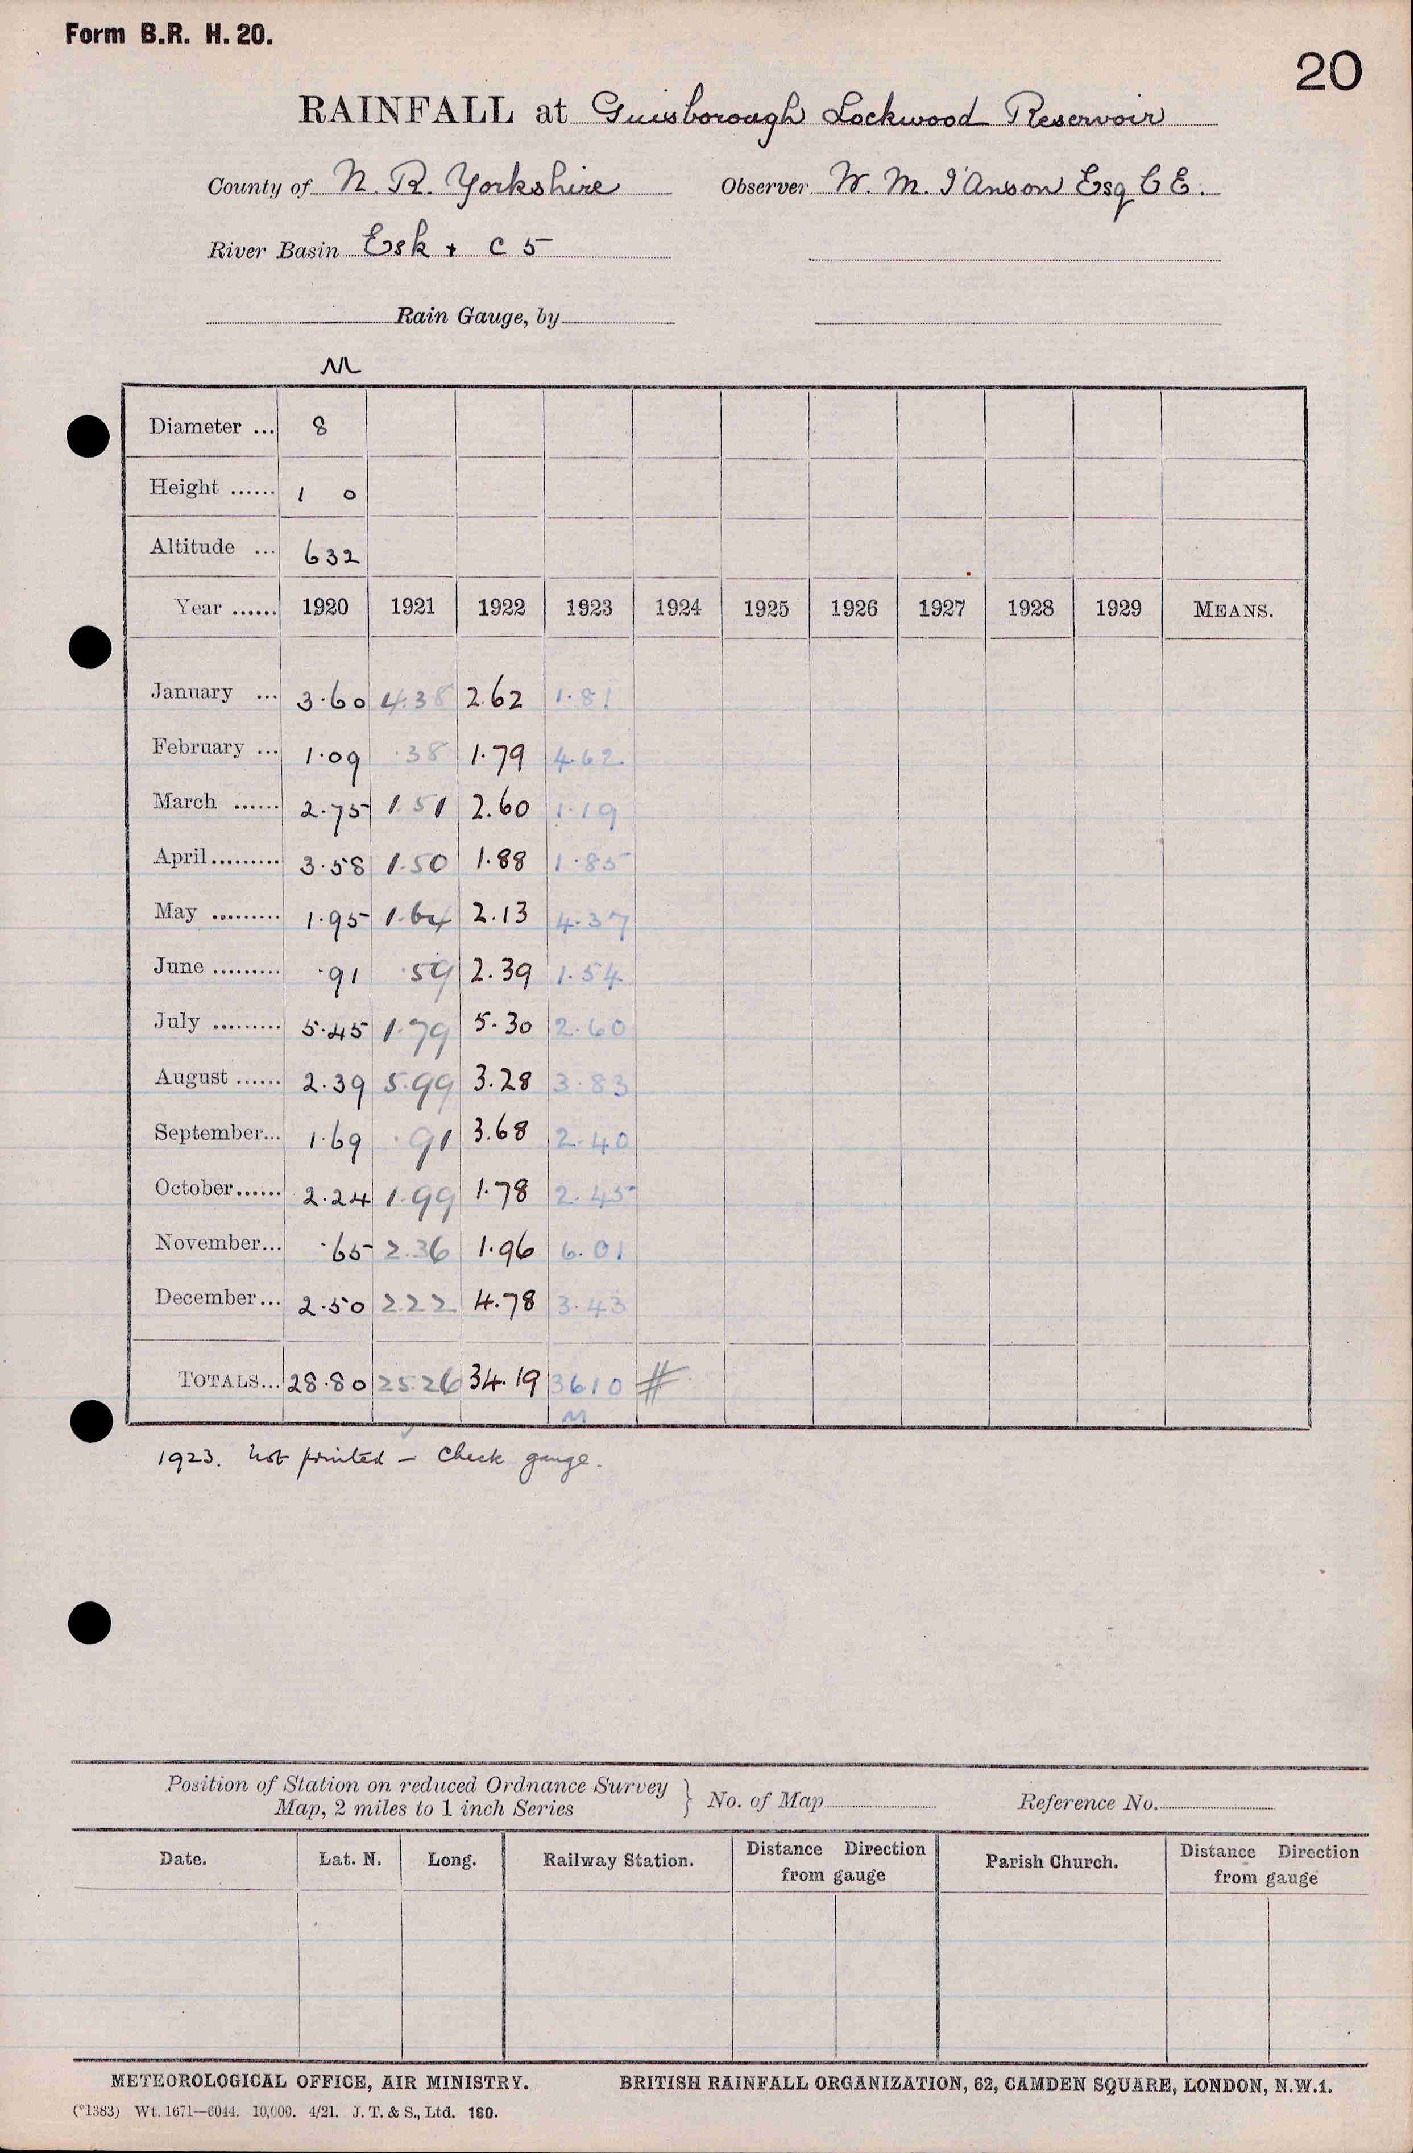 Form B.R. H. 20.
20
RAINFALL at Guisborough Lockwood Reservoir
County of N. R. Yorkshire Observer W. M. I'Anson Esq C E.
River Basin Esk + C 5
Rain Gauge, by
M
Diameter ... 8
Height ...... 1 0
Altitude ... 632
Year ...... 1920 1921 1922 1923 1924 1925 1926 1927 1928 1929 MEANS.
January ... 3.60 4.38 2.62 1.81
February ... 1.09 .38 1.79 4.62
March ...... 2.75 1.51 2.60 1.19
April ......... 3.58 1.50 1.88 1.85
May ......... 1.95 1.64 2.13 4.37
June ......... .91 .59 2.39 1.54
July ......... 5.45 1.79 5.30 2.60
August ...... 2.39 5.99 3.28 3.83
September... 1.69 .91 3.68 2.40
October...... 2.24 1.99 1.78 2.45
November... .65 2.36 1.96 6.01
December... 2.50 2.22 4.78 3.43
TOTALS... 28.80 25.26 34.19 36.10 #
M
1923. Not printed – Check gauge.
Position of Station on reduced Ordnance Survey
Map, 2 miles to 1 inch Series } No. of Map Reference No.
Date. Lat. N. Long. Railway Station. Distance Direction from gauge Parish Church. Distance Direction from gauge
METEOROLOGICAL OFFICE, AIR MINISTRY. BRITISH RAINFALL ORGANIZATION, 62, CAMDEN SQUARE, LONDON, N.W.1.
(*1383) Wt. 1671—6044. 10,000. 4/21. J. T. & S., Ltd. 180.